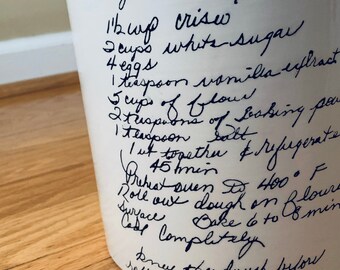 1 1/2 cup crisco
2 cups white sugar
4 eggs
1 teaspoon vanilla extract
5 cups of flour
2 teaspoons of baking pow
1 teaspoon salt
together & refrigerate
45 min
Preheat oven to 400° F
Roll out dough on floure
surface Bake 6 to 8 min
Cool Completely
dough before